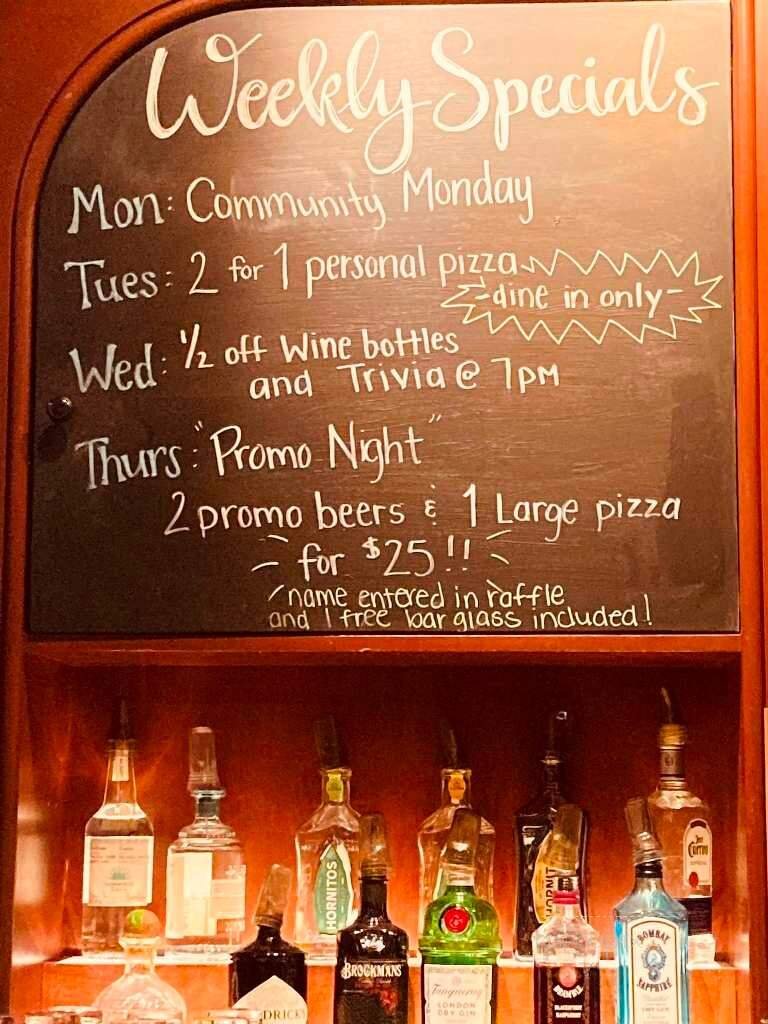 Weekly Specials
Mon: Community Monday
Tues: 2 for 1 personal pizza
-dine in only-
Wed: 1/2 off Wine bottles
and Trivia @ 7PM
Thurs: "Promo Night"
2 promo beers & 1 Large pizza
for $25!!
name entered in raffle
and 1 free bar glass included!
HORNITOS
HORNIT
Jose
Cuervo
BROCKMANS
DRICK'S
Tanqueray
LONDON
DRY GIN
BOMBAY
SAPPHIRE